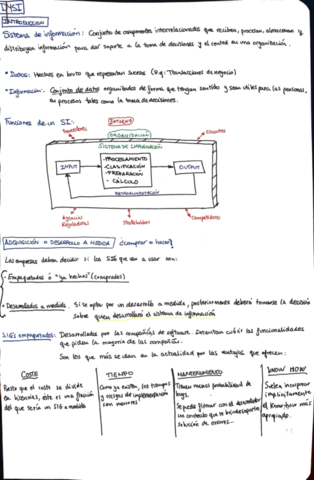 DYSI
INTRODUCCION
Sistema de información: Conjunto de componentes interrelacionados que reciben, procesan, almacenan y
distribuyen información para dar soporte a la toma de decisiones y el control en una organización.
• Datos: Hechos en bruto que representan sucesos (P.g: Transacciones de negocio)
• Información: Conjunto de datos organizados de forma que tengan sentido y sean utiles para las personas,
en procesos tales como la toma de decisiones.
Funciones de un SI:
ENTORNO
ORGANIZACION
SISTEMA DE INFORMACIÓN
Proveedores
Clientes
INPUT
-PROCESAMIENTO
-CLASIFICACIÓN
-PREPARACIÓN
- CÁLCULO
OUTPUT
RETROALIMENTACIÓN
Agencias
Reguladoras
Stakeholders
Competidores
ADQUISICIÓN O DESARROLLO A MEDIDA ¿comprar o hacer?
Las empresas deben decidir si los SIs que van a usar son:
• Empaquetados ó "ya hechos" (comprados)
• Desarrollados a medida. Si se opta por un desarrollo a medida, posteriormente deberá tomarse la decisión
sobre quien desarrollará el sistema de información
SIs empaquetados: Desarrollados por las compañías de software. Intentan cubrir las funcionalidades
que piden la mayoría de las compañías.
Son los que más se dan en la actualidad por las ventajas que ofrecen:
COSTE
Puesto que el coste se divide
en licencias, éste es una fracción
del que sería un SI a medida
TIEMPO
Como ya existen, los tiempos
y riesgos de implementación
son menores
MANTENIMIENTO
Tienen menos probabilidad de
bugs.
Se puede firmar con el desarrollador
un contrato que te brinde soporte,
solución de errores...
KNOW HOW
Suelen incorporar
implícitamente
el Know how más
apropiado.